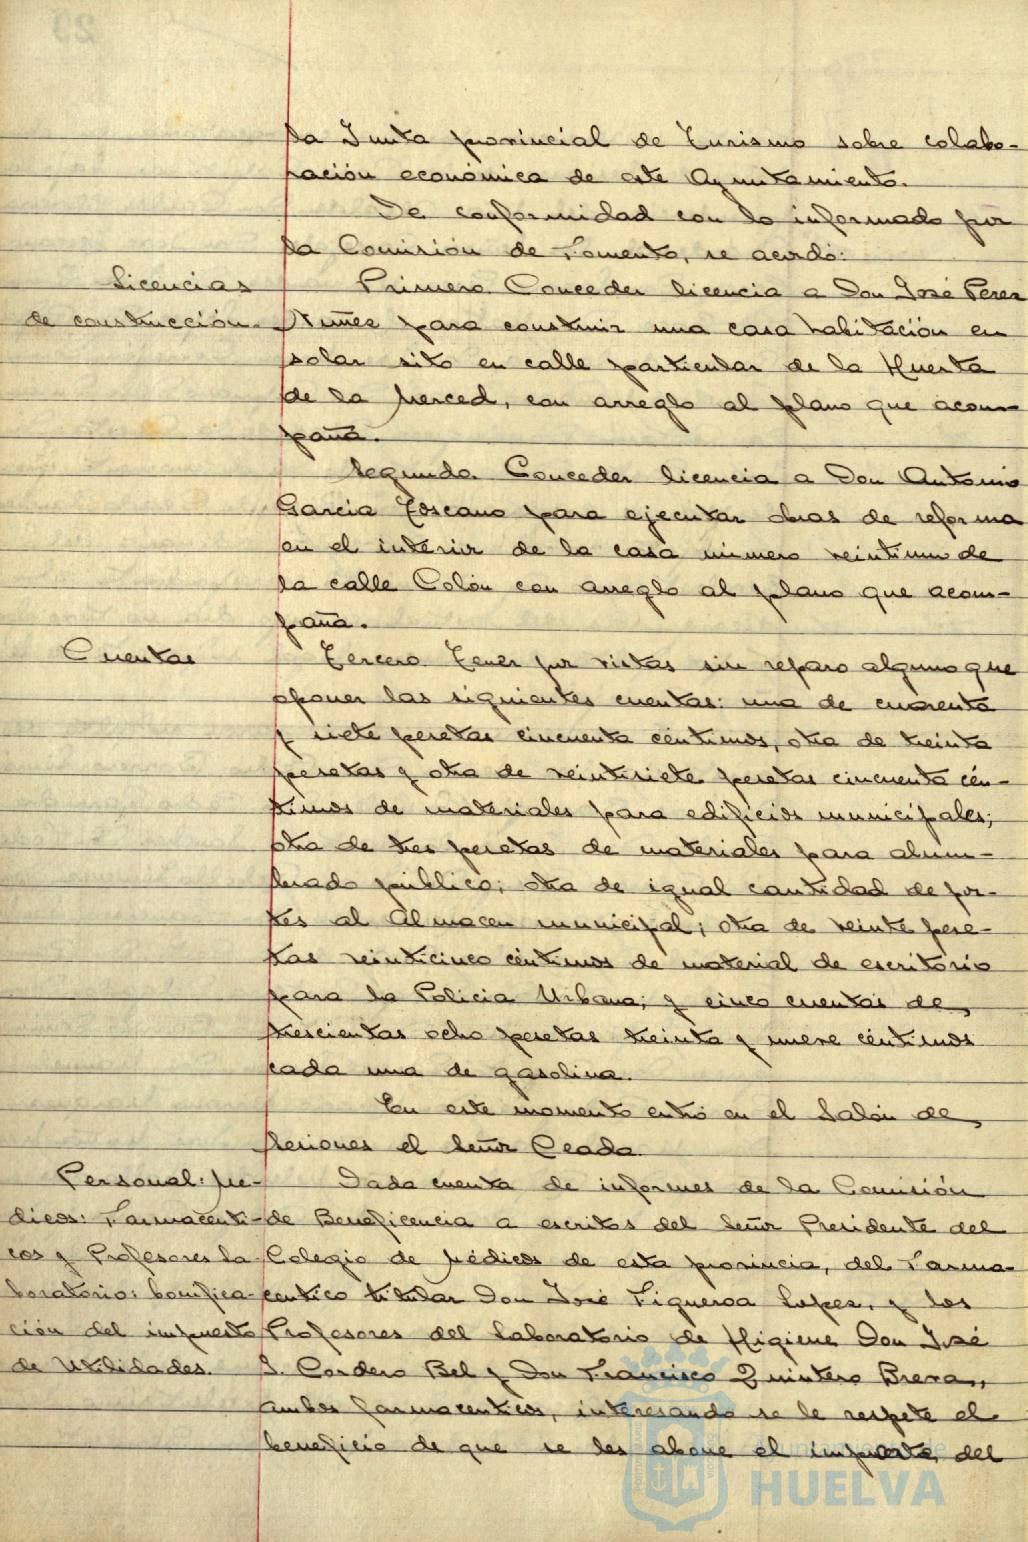 la Junta provincial de Turismo sobre colabo-
ración económica de este Ayuntamiento.
De conformidad con lo informado por
la Comisión de Fomento, se acordó:
Licencias
de construcción.
Primero. Conceder licencia a Don José Perez
Nuñez para construir una casa habitación en
solar sito en calle particular de la Huerta
de la Merced, con arreglo al plano que acom-
paña.
Segundo. Conceder licencia a Don Antonio
Garcia Toscano para ejecutar obras de reforma
en el interior de la casa número veintiuno de
la calle Colón con arreglo al plano que acom-
paña.
Cuentas
Tercero. Tener por vistas sin reparo alguno que
oponer las siguientes cuentas: una de cuarenta
y siete pesetas cincuenta céntimos, otra de treinta
pesetas y otra de veintisiete pesetas cincuenta cén-
timos de materiales para edificios municipales;
otra de tres pesetas de materiales para alum-
brado público; otra de igual cantidad de por-
tes al Almacen municipal; otra de veinte pese-
tas veinticinco céntimos de material de escritorio
para la Policia Urbana; y cinco cuentas de
trescientas ocho pesetas treinta y nueve céntimos
cada una de gasolina.
En este momento entró en el Salón de
Sesiones el Señor Ceada.
Personal: Mé-
dicos: Farmacenti-
cos y Profesores la
boratorio: bonifica-
ción del impuesto
de Utilidades.
Dada cuenta de informes de la Comisión
de Beneficencia a escritos del Señor Presidente del
Colegio de Médicos de esta provincia, del Farma-
centico titular Don José Figueroa Lopez, y los
Profesores del Laboratorio de Higiene Don José
J. Cordero Bel y Don Francisco Quintero Brera,,
ambos farmacenticos, interesando se le respete el
beneficio de que se les abone el importe del
Ayuntamiento de
HUELVA